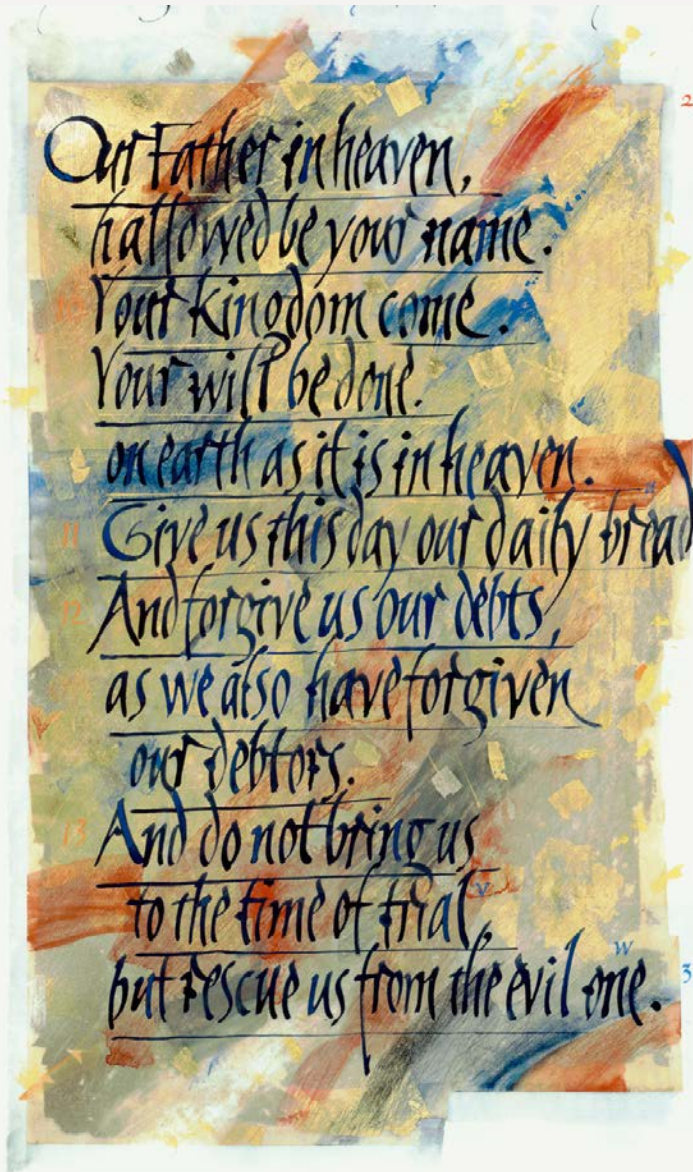 2
Our Father in heaven,
hallowed be your name.
10 Your kingdom come.
Your will be done.
on earth as it is in heaven.
u
11 Give us this day our daily bread
12 And forgive us our debts,
as we also have forgiven
our debtors.
13 And do not bring us
v
to the time of trial,
w
but rescue us from the evil one.
3